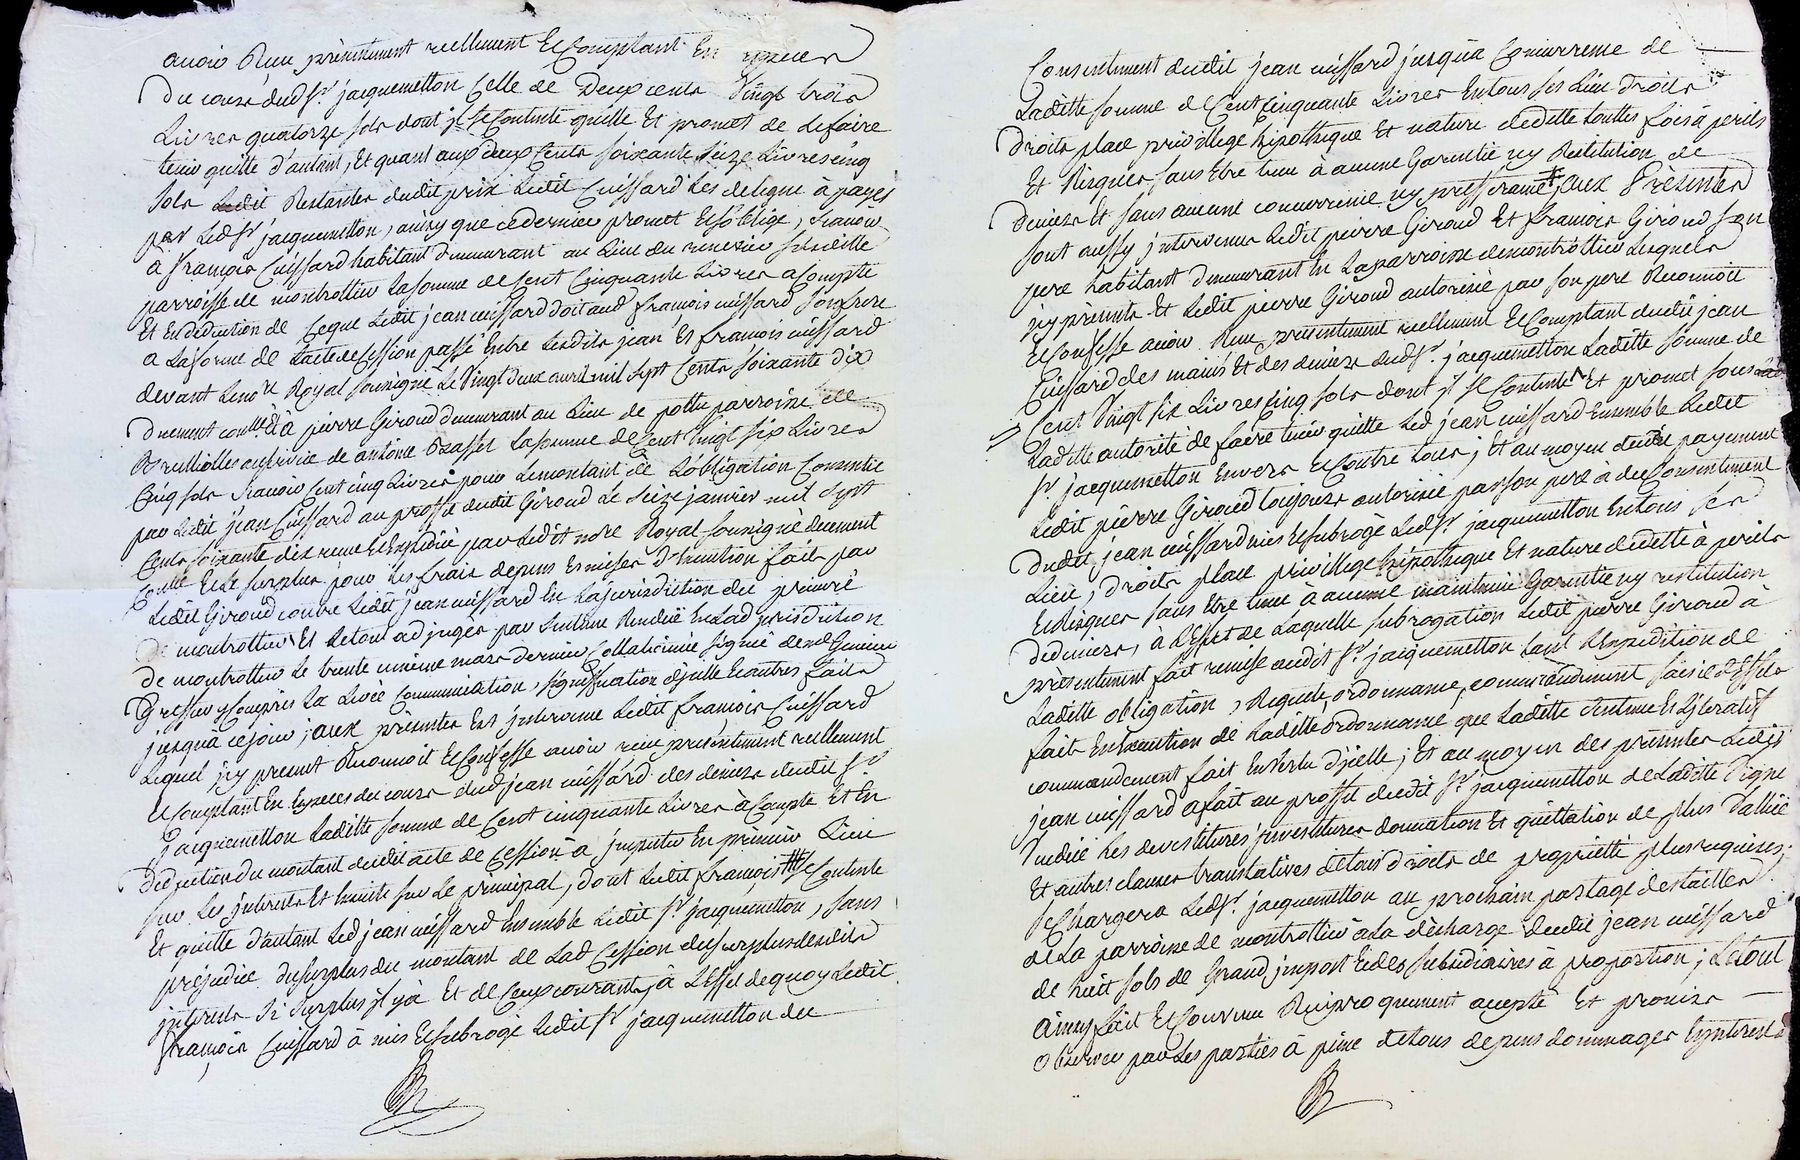 avoir Reçu présentement reellement Et Comptant En espèces
Du cours dud Sr. jacquemetton Celle de Deux cents Vingt trois
Livres quatorze sols dont jl se Contente quitte Et promet de le faire
tenir quitte d'autant, Et quant aux deux Cents soixante Seize Livres cinq
sols Ledit Restantes dudit prix Ledit Cuissard Les delegue à payer
par Led Sr jacquemetton, ainsy que ce dernier promet Et s'oblige, sçavoir
à françois Cuissard habitant demeurant au Lieu du susditte
parroisse de montrottier La somme de Cent Cinquante Livres acompte
Et En deduction de Ceque Ledit jean cuissard doit aud francois cuissard son frere
a La forme de L'acte de Cession passé Entre Lesdits jean Et francois cuissard
devant Le nore Royal soussigné Le Vingt deux avril mil sept Cents soixante dix
Duement conllé Et à pierre Giroud demeurant au Lieu de parroisse de
Brullioles de antoine La somme de Cent Vingt six Livres
Cinq sols sçavoir Cent cinq Livres pour Le montant de L'obligation Consentie
par Ledit jean Cuissard au proffit dudit Giroud Le Seize janvier mil sept
Cents soixante dix reçue Et Expediée par Ledit nore Royal soussigné duement
Conllé Et Le surplus pour Les frais depens Et mises D'Execution faits par
Ledit Giroud contre Ledit jean cuissard En La jurisdiction du prieuré
De montrottier Et Le tout adjugés par Sentence Rendüe En Lad jurisdiction
de montrottier Le trente unieme mars dernier Collationnée signée de me
Greffier y Compris La Levée Communication, signiffication d'jcelle Et autres faits
jusquà ce jour; aux présentes Est jntervenu Ledit francois Cuissard
Lequel jcy present Reconnoit Et Confesse avoir reçu presentement reellement
Et Comptant En Especes du cours dud jean cuissard des deniers dudit Sr
jacquemetton Laditte somme de Cent cinquante Livres à Compte Et En
Deduction du montant dudit acte de Cession à jmputer En premier Lieu
sur Les jnterets Et Ensuite sur Le principal, dont Ledit françois se Contente
Et quitte d'autant Led jean cuissard Ensemble Ledit Sr jacquemetton, sans
prejudice du surplus du montant de Lad Cession du surplus desdits
jnterets si surplus jl y à Et de Ceux courants, à L'Effet dequoy Ledit
francois Cuissard à mis Et subrogé Ledit Sr jacquemetton du
Consentement dudit jean cuissard jusqu'à Concurrence de
Laditte somme de Cent Cinquante Livres En tous ses Lieu droits
Droits place privillege hipotheque Et nature dedette touttes fois à perils
Et Risques sans Etre tenu à aucune Garentie ny Restitution de
deniers Et sans aucune concurrence ny pressence; aux Présentes
sont aussy jntervenus Ledit pierre Giroud Et francois Giroud son
pere habitant demeurant En La parroisse de montrottier Lesquels
jcy présents Et Ledit pierre Giroud autorisé par son pere Reconnoit
Et Confesse avoir Reçu presentement reellement Et Comptant dudit jean
Cuissard des mains Et des deniers dud Sr. jacquemetton Laditte somme de
Cent Vingt six Livres Cinq sols dont jl se Contente Et promet sous
Laditte autorité de faire tenir quitte Led jean cuissard Ensemble Ledit
Sr jacquemetton Envers Et Contre tous; Et au moyen dudit payement
Ledit pierre Giroud toujours autorisé par son pere à du Consentement
Dudit jean cuissard mis Et subrogé Led Sr jacquemetton En tous ses
Lieu, droits place privillege hipotheque Et nature dedette à perils
Et Risques sans Etre tenu à aucune maintenue Garentie ny restitution
de deniers, à L'Effet de Laquelle subrogation Ledit pierre Giroud à
présentement fait remise audit Sr. jacquemetton tant L'Expedition de
Laditte obligation, Requete, ordonnance, commandement saisie
faits En Execution de Laditte ordonnance que Laditte Sentence Et jteratif
commandement fait En Vertu d'jcelle; Et au moyen des présentes Ledit
jean cuissard a fait au proffit dudit Sr. jacquemetton de Laditte Vigne
Vendüe Les devestitures jnvestitures donnation Et quittation de plus Vallüe
Et autres clauses translatives de tous droits de proprieté plus requises;
se Chargera Led Sr. jacquemetton au prochain partage des tailles
de La parroisse de montrottier à La décharge dudit jean cuissard
de huit sols de Grand jmpost Et des subsidiaires à proportion; Le tout
ainsy fait Et Convenu Reciproquement accepté Et promis
observer par Les parties à peine de tous depens dommages Et jnterests